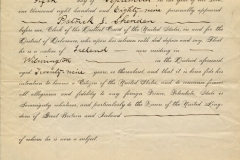 day of
thousand eight hundred and Eighty nine personally appeared
Patrick J.
before me, Clerk of the District Court of the United States, in and for the
District of Delaware, who upon his solemn oath did depose and say, That
he is a native of Ireland now residing in
Wilmington in the District aforesaid
aged Twenty nine years, or thereabout, and that it is bona fide his
intention to become a Citizen of the United States, and to renounce forever
all allegiance and fidelity to any foreign Prince, Potentate, State or
Sovereignty whatever, and particularly to the Queen of the United King-
dom of Great Britain and Ireland
of whom he is now a subject